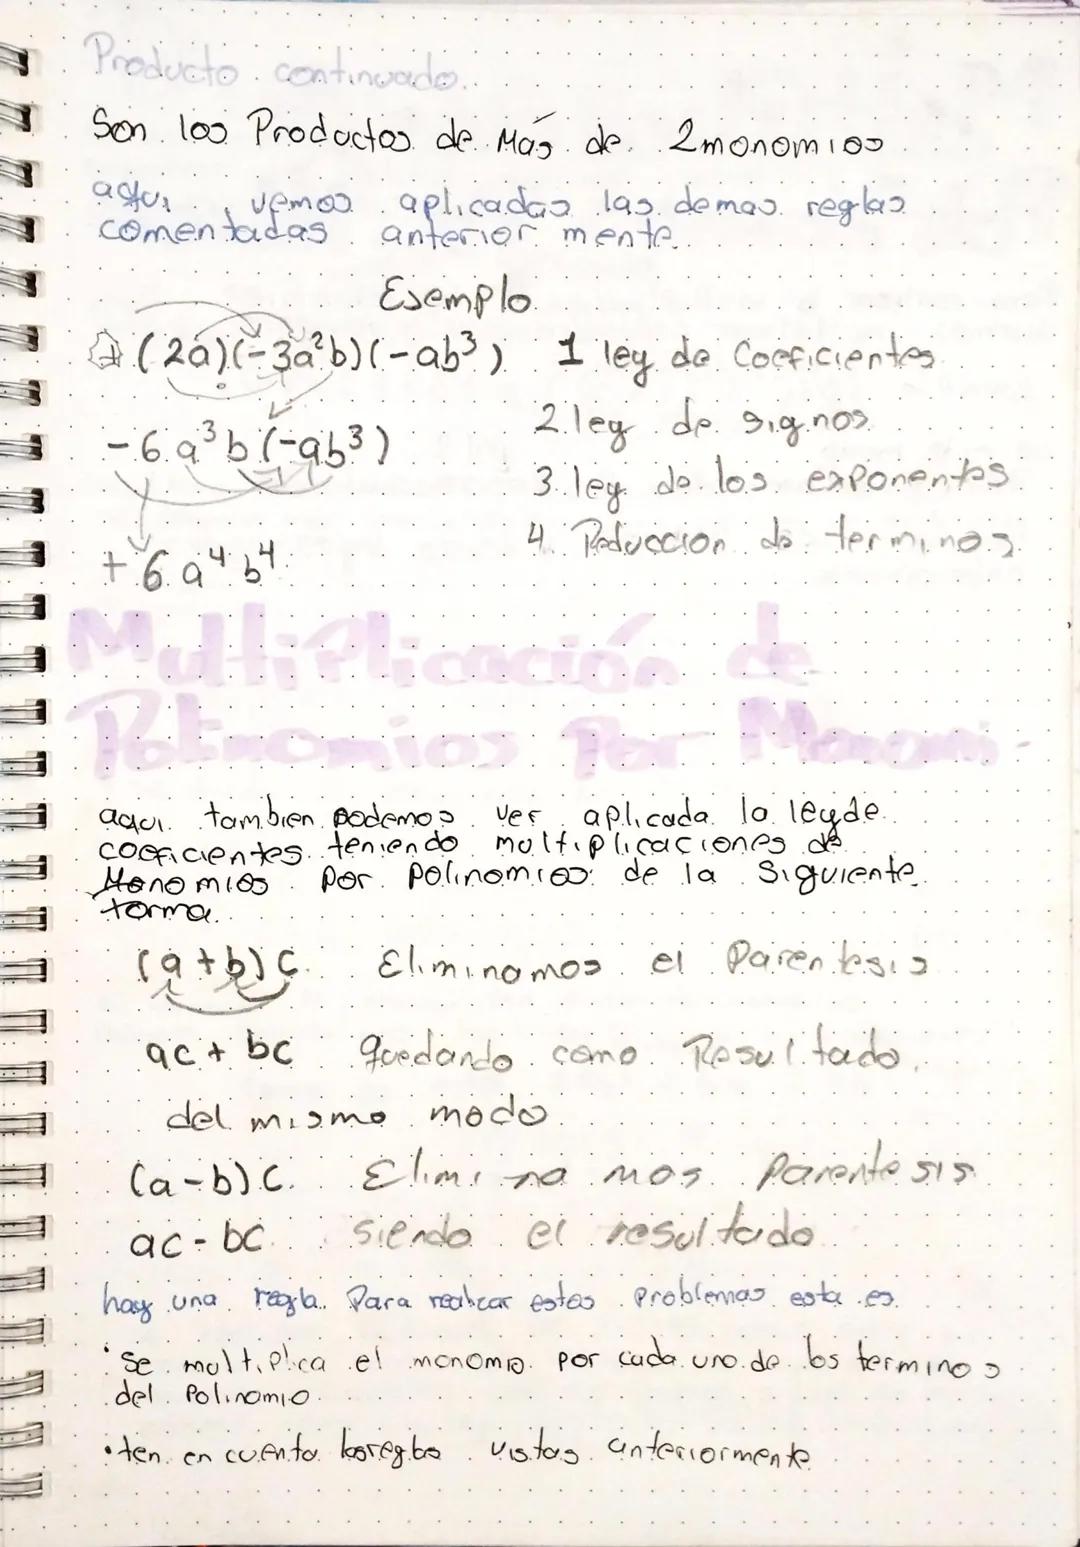 Producto continuado..
Son los Productos de Más de 2 monomios
aqui vemos aplicadas las demas reglas
comentadas anterior mente.
Esemplo
(2a)(-3a²b)(-ab³) 1 ley de Coeficientes
-6a³b(-ab³) 2. ley de signos
3. ley de los exponentes
+6a⁴b⁴ 4. Reduccion de terminos
Multiplicación de
Polinomios Por Monomi-
aqui tambien podemos ver aplicada la ley de
coeficientes teniendo multiplicaciones de
Monomios por Polinomios de la Siguiente
forma.
(a+b)c Eliminamos el Parentesis
ac + bc quedando como Resultado,
del mismo modo
(a-b)c. Elimina mos Parentesis
ac-bc siendo el resultado
hay una regla Para realizar estos problemas esta es
• se multiplica el monomio por cada uno de los terminos
del Polinomio
• ten en cuenta las reglas vistas anteriormente